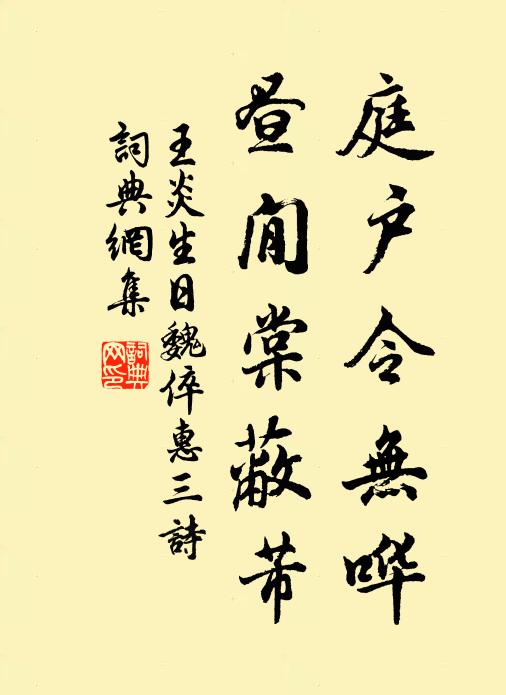 庭户令無哗
昼閒棠蔽芾
王炎生日魏倅惠三詩
詞典網集
詞典网印